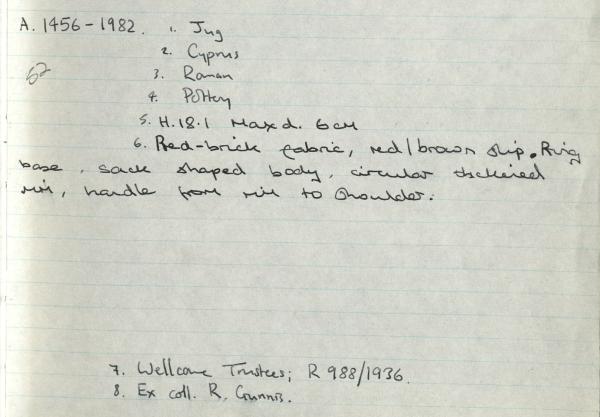 A. 1456-1982. 1. Jug
2. Cyprus
62
3. Roman
4. Pottery
5. H.18.1 Max d. 6cm
6. Red-brick fabric, red/brown slip. Ring
base, sack shaped body, circular thickened
rim, handle from rim to shoulder.
7. Wellcome Trustees; R 988/1936.
8. Ex coll. R. Gunnis.